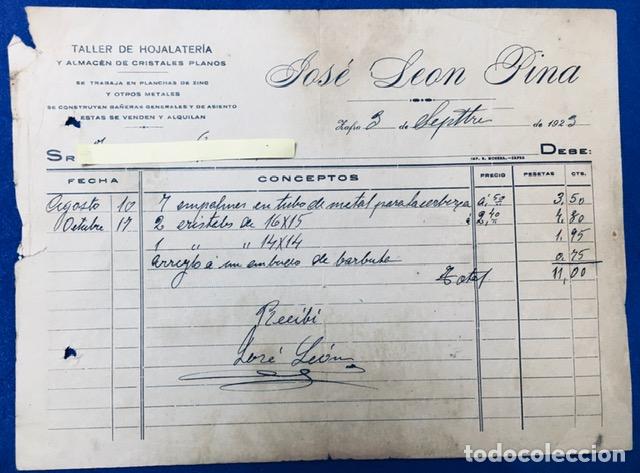 TALLER DE HOJALATERÍA
Y ALMACÉN DE CRISTALES PLANOS
SE TRABAJA EN PLANCHAS DE ZINC
Y OTROS METALES
SE CONSTRUYEN BAÑERAS GENERALES Y DE ASIENTO
ESTAS SE VENDEN Y ALQUILAN
José Leon Pina
Zafra 3 de Septtre de 1923
IMP. R. MORERA.-ZAFRA
SR DEBE:
FECHA CONCEPTOS PRECIO PESETAS CTS.
Agosto 10 7 empalmes en tubo de metal para la cerbeza á 50 3,50
Octubre 17 2 cristales de 16X15 á 2,40 4,80
1 " " 14X14 1,95
Arreglo á un embudo de 0,75
Total 11,00
Recibi
José León
todocoleccion